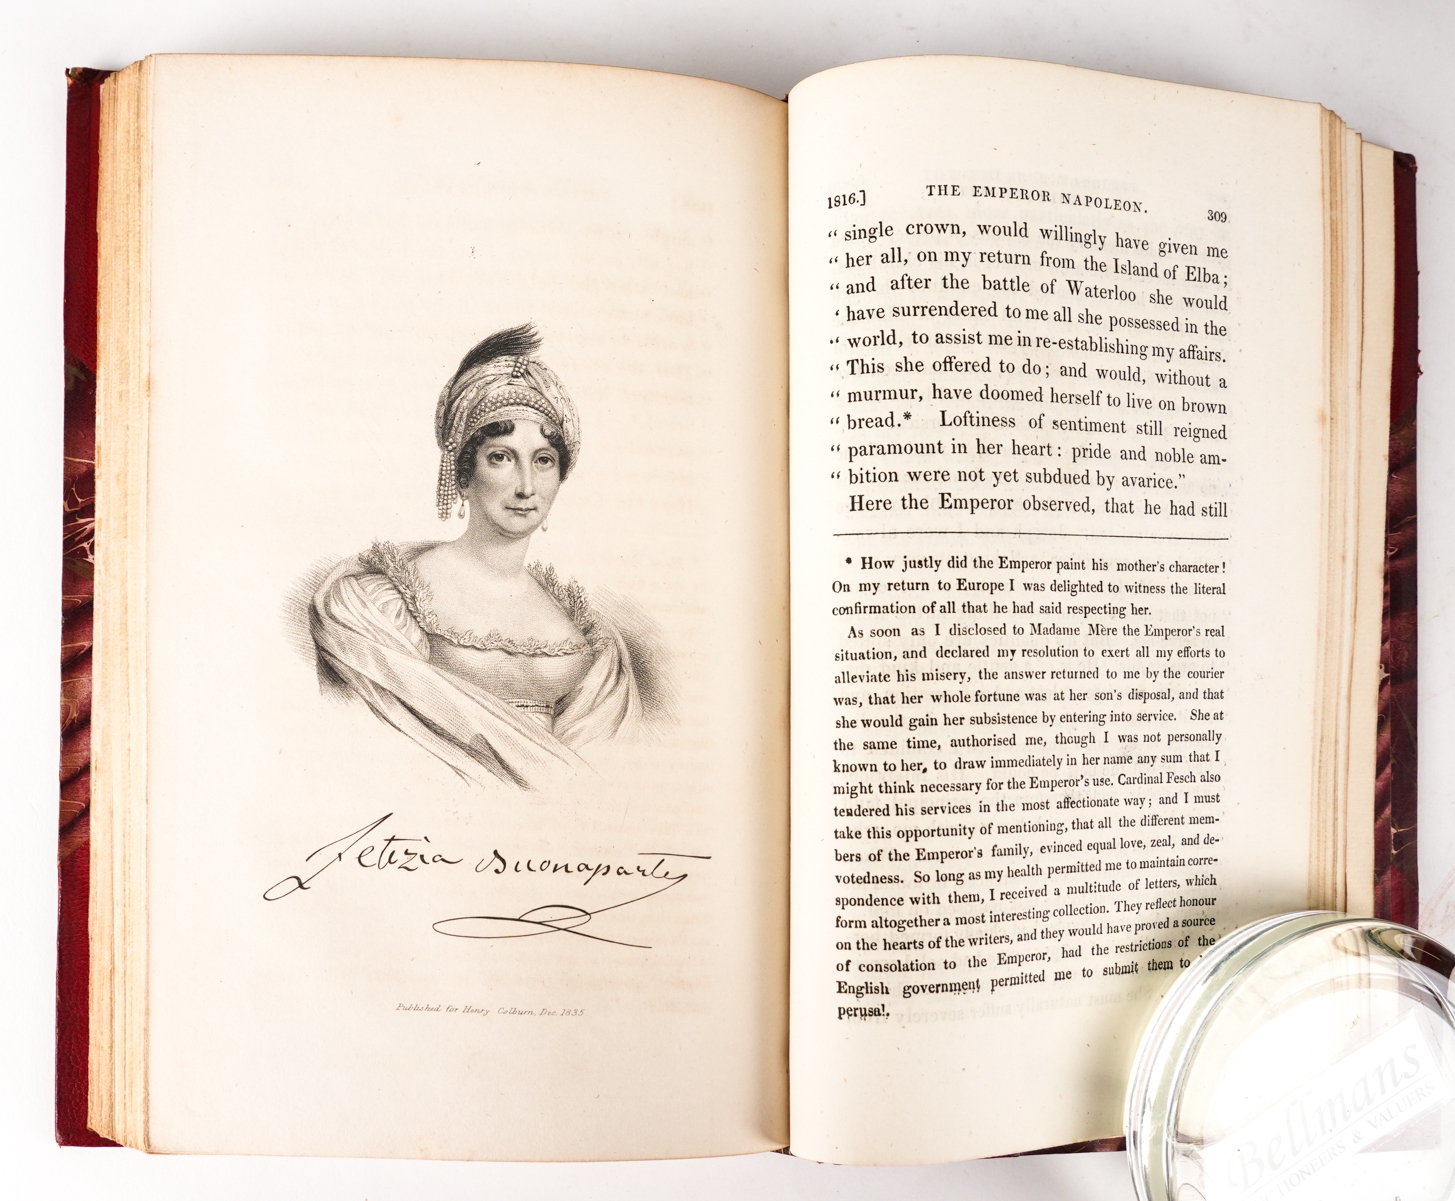 Letizia Buonaparte
Published for Henry Colburn, Dec. 1835.
1816.] THE EMPEROR NAPOLEON. 309
“ single crown, would willingly have given me
“ her all, on my return from the Island of Elba;
“ and after the battle of Waterloo she would
‘ have surrendered to me all she possessed in the
“ world, to assist me in re-establishing my affairs.
“ This she offered to do; and would, without a
“ murmur, have doomed herself to live on brown
“ bread.* Loftiness of sentiment still reigned
“ paramount in her heart: pride and noble am-
“ bition were not yet subdued by avarice.”
Here the Emperor observed, that he had still
* How justly did the Emperor paint his mother's character!
On my return to Europe I was delighted to witness the literal
confirmation of all that he had said respecting her.
As soon as I disclosed to Madame Mère the Emperor's real
situation, and declared my resolution to exert all my efforts to
alleviate his misery, the answer returned to me by the courier
was, that her whole fortune was at her son's disposal, and that
she would gain her subsistence by entering into service. She at
the same time, authorised me, though I was not personally
known to her, to draw immediately in her name any sum that I
might think necessary for the Emperor's use. Cardinal Fesch also
tendered his services in the most affectionate way; and I must
take this opportunity of mentioning, that all the different mem-
bers of the Emperor's family, evinced equal love, zeal, and de-
votedness. So long as my health permitted me to maintain corre-
spondence with them, I received a multitude of letters, which
form altogether a most interesting collection. They reflect honour
on the hearts of the writers, and they would have proved a source
of consolation to the Emperor, had the restrictions of the
English government permitted me to submit them to
perusal.
Bellmans
& VALUERS